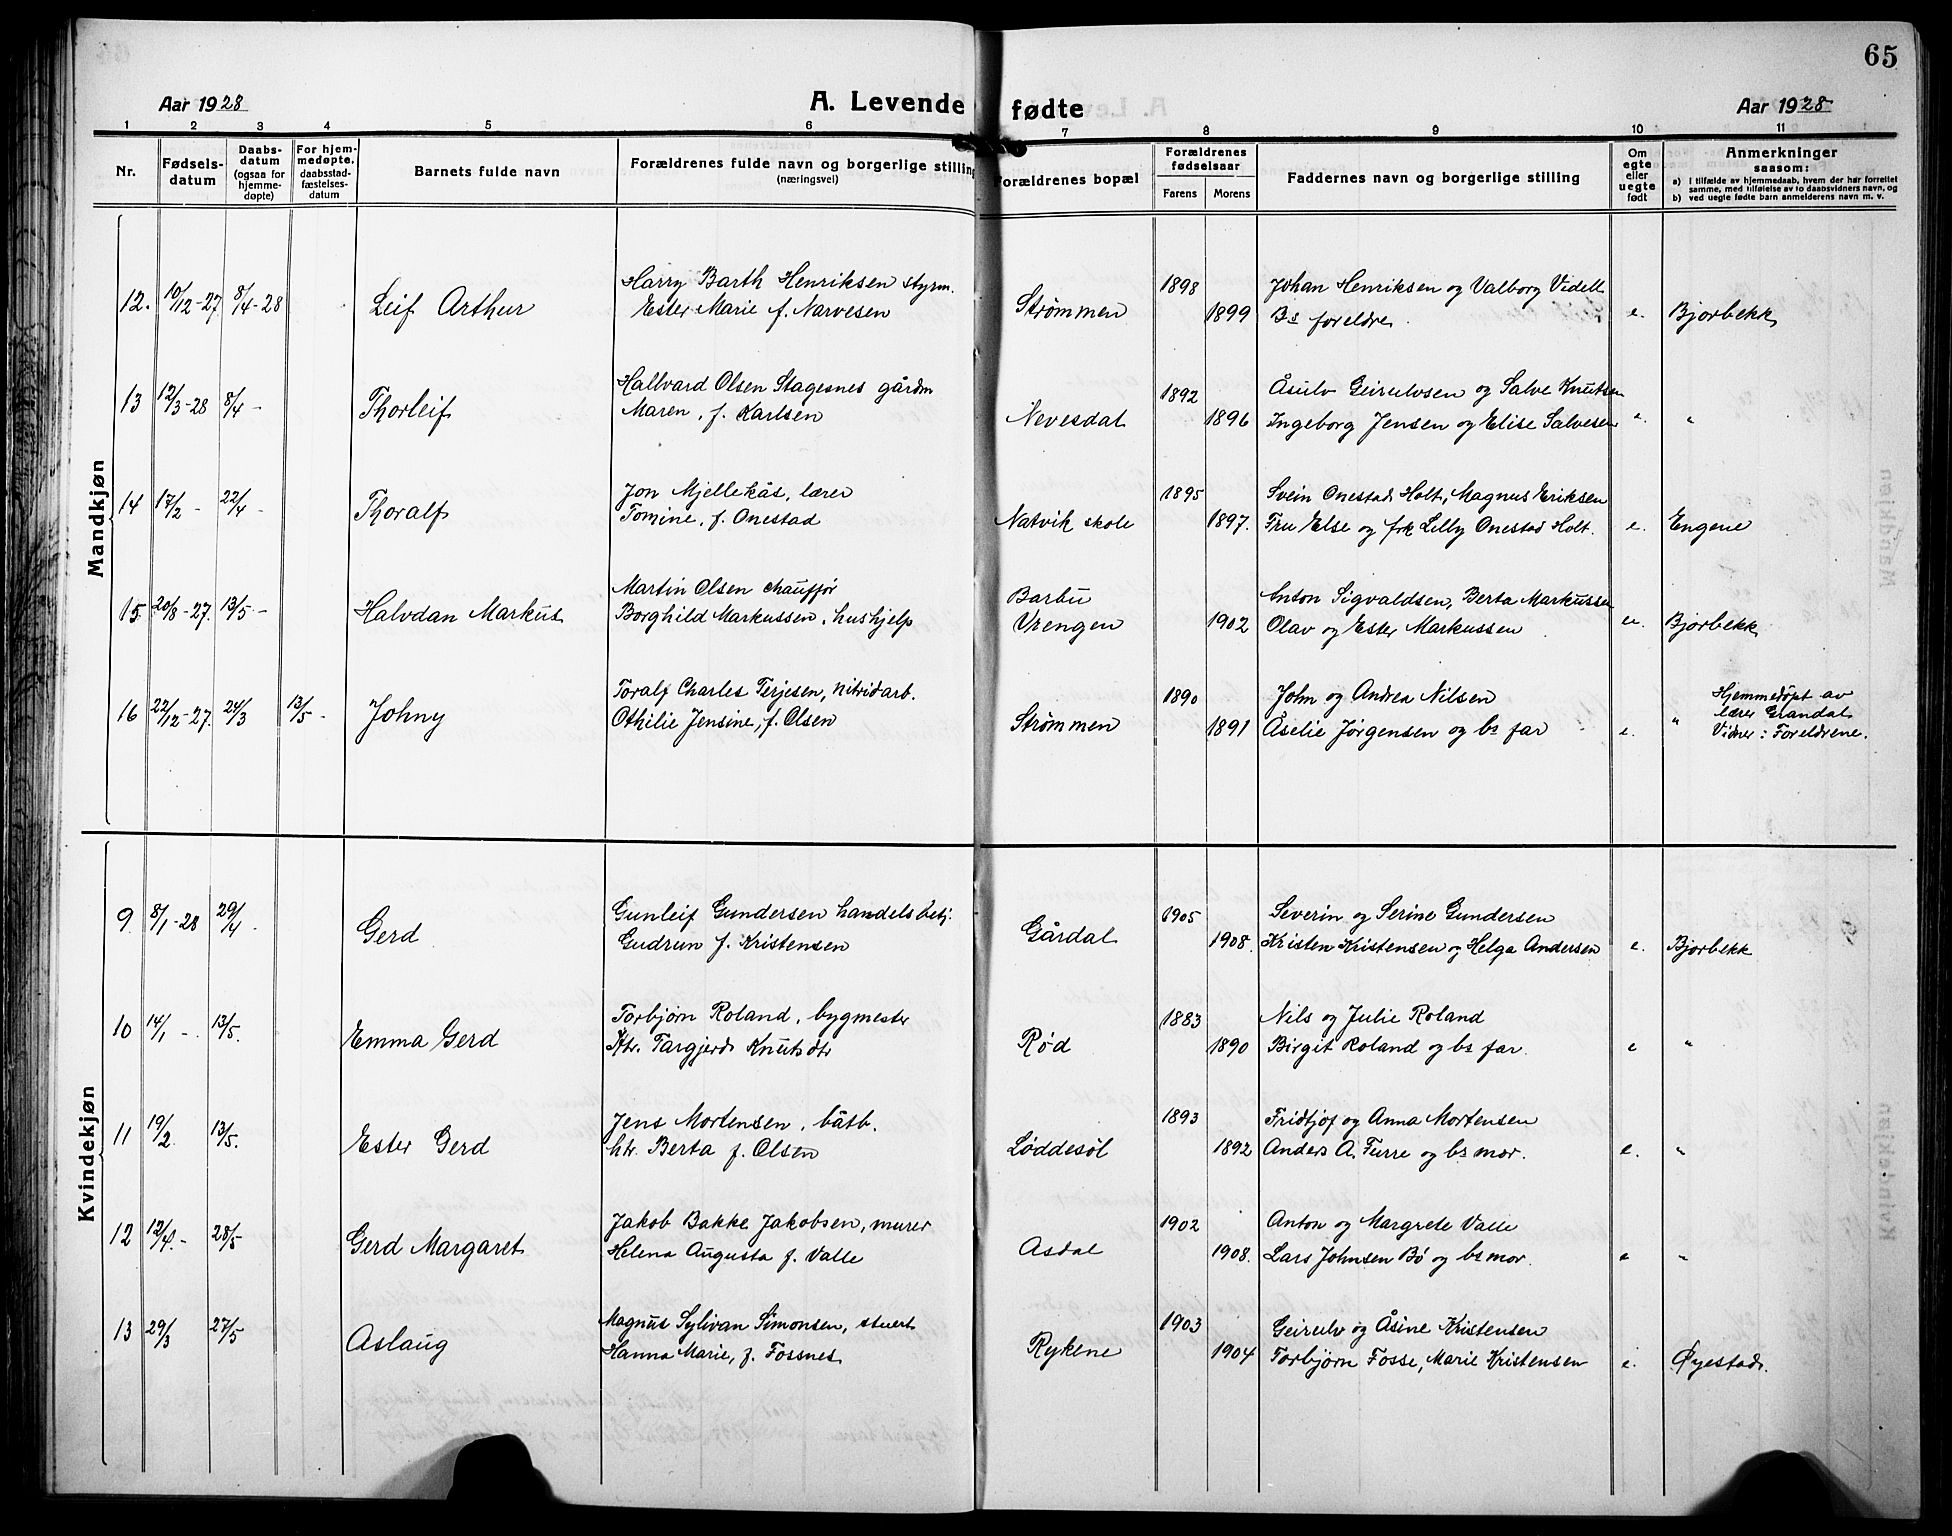 65
Aar 1928
A. Levende fødte
Aar 1928
1 2 3 4 5 6 7 8 9 10 11
Nr.
Fødsels-
datum
Daabs-
datum
(ogsaa for
hjemme-
døpte)
For hjem-
medøpte,
daabsstad-
fæstelses-
datum
Barnets fulde navn
Forældrenes fulde navn og borgerlige stilling
(næringsvei)
Forældrenes bopæl
Forældrenes
fødselsaar
Farens Morens
Faddernes navn og borgerlige stilling
Om
egte
eller
uegte
født
Anmerkninger
saasom:
a) I tilfælde av hjemmedaab, hvem der har forrettet
samme, med tilføielse av to daabsvidners navn, og
b) ved uegte fødte barn anmelderens navn m. v.
Mandkjøn
12. 10/12-27 8/4-28 Leif Arthur
Harry Barth Henriksen styrm.
Ester Marie f. Narvesen
Strømmen 1898 1899
Johan Henriksen og Valborg Videll
Bs foreldre.
e. Bjorbekk
13 12/3-28 8/4 - Thorleif
Hallvard Olsen Stagesnes gårdm
Maren, f. Karlsen
Nevesdal 1892 1896
Åsulv Geirulvsen og Salve Knutsen
Ingeborg Jensen og Elise Salvesen
" "
14 17/2 - 22/4 - Thoralf
Jon Mjellekås, lærer
Tomine, f. Onestad
Natvik skole 1895 1897.
Svein Onestad Holt, Magnus Eriksen
Fru Else og frk Lilly Onestad Holt.
e. Engene
15. 20/8-27. 13/5 - Halvdan Markus
Martin Olsen chauffør
Borghild Markussen, hushjelp
Barbu
Vrengen
1902
Anton Sigvaldsen, Berta Markussen
Olav og Ester Markussen
ue. Bjorbekk
16 22/12-27. 24/3 13/5 - Johny
Toralf Charles Terjesen, nitridarb.
Othilie Jensine, f. Olsen
Strømmen 1890 1891
John og Andrea Nilsen
Åselie Jørgensen og bs far
e. "
Hjemmedøpt av
lærer Grandal
Vidner: Foreldrene.
Kvindekjøn
9. 8/1-28 29/4 - Gerd
Gunleif Gundersen handelsbetj.
Gudrun f. Kristensen
Gårdal 1905 1908.
Severin og Serine Gundersen
Kristen Kristensen og Helga Andersen
e. Bjorbekk
10 14/1 - 13/5. Emma Gerd
Torbjørn Roland, bygmester
Htr. Targjerd Knutsdtr
Rød 1883 1890
Nils og Julie Roland
Birgit Roland og bs far.
e "
11 19/2. 13/5. Ester Gerd
Jens Mortensen, båtb.
htr. Berta f. Olsen
Løddesøl 1893 1892
Fridtjof og Anna Mortensen
Anders A. Furre og bs mor.
e. "
12 12/4. - 28/5 Gerd Margaret
Jakob Bakke Jakobsen, murer
Helena Augusta f. Valle
Asdal 1902 1908.
Anton og Margrete Valle
Lars Johnsen Bø og bs mor.
e "
13 29/3 27/5 Aslaug
Magnus Sylivan Simonsen, stuert
Hanna Marie, f. Fossnes
Rykene 1903 1904
Geirulv og Åsine Kristensen
Torbjørn Fosse, Marie Kristensen
e. Øyestad.